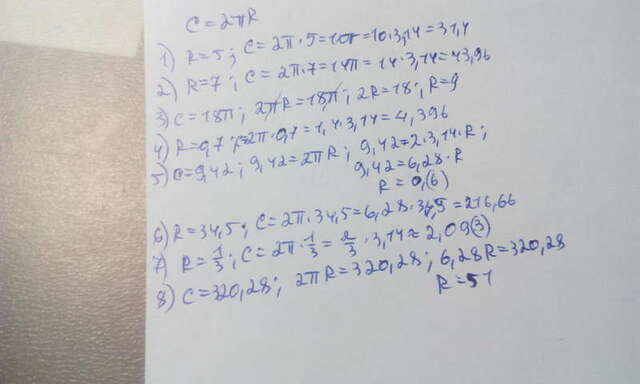 C=2πR
1) R=5; C=2π·5=10π=10·3,14=31,4
2) R=7; C=2π·7=14π=14·3,14=43,96
3) C=18π; 2πR=18π; 2R=18; R=9
4) R=0,7 C=2π·0,7=1,4·3,14=4,396
5) C=9,42; 9,42=2πR; 9,42=2·3,14·R;
9,42=6,28·R
R=0,(6)
6) R=34,5; C=2π·34,5=6,28·34,5=216,66
7) R=1/3; C=2π·1/3=2/3·3,14≈2,09(3)
8) C=320,28; 2πR=320,28; 6,28R=320,28
R=51